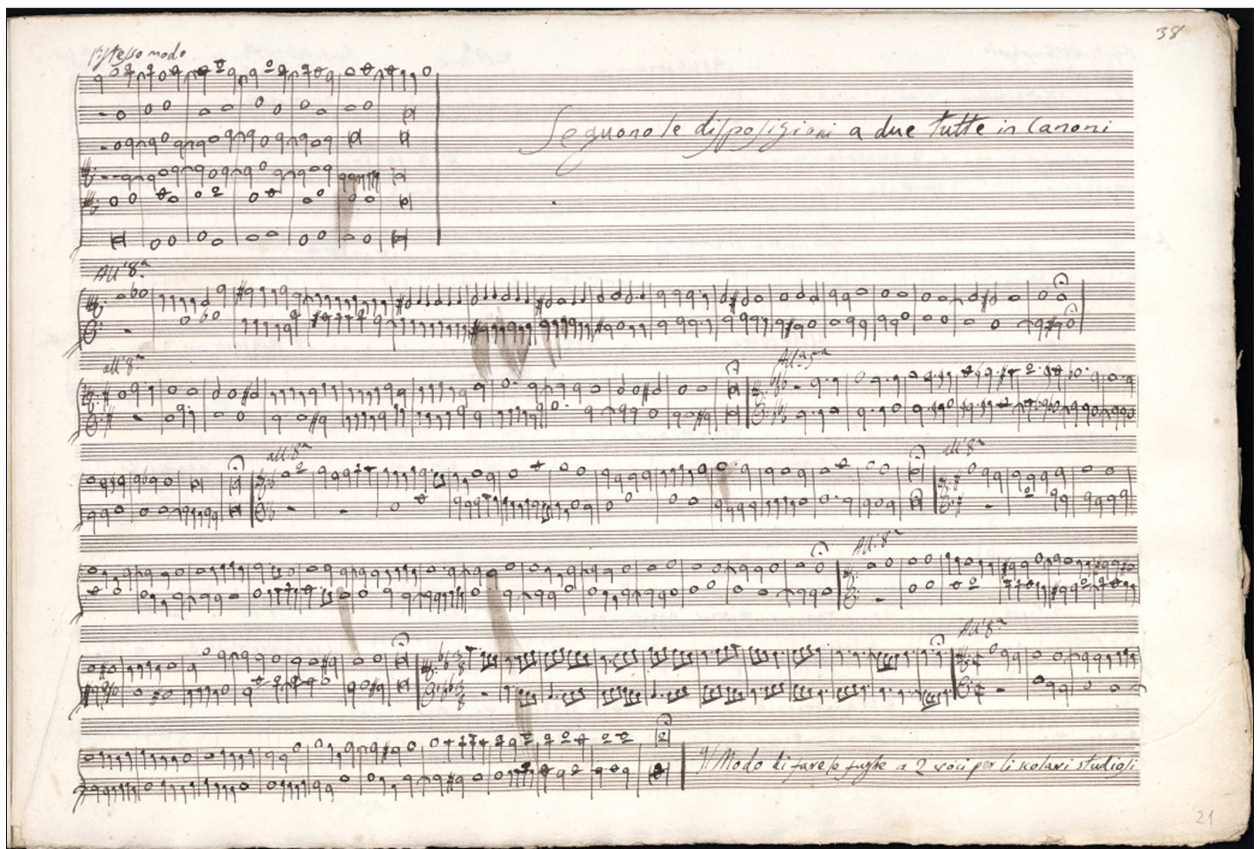 38
l'istesso modo
Seguono le disposizioni a due tutte in Canoni
All' 8.a
all' 8.a
Alla 5.a
all' 8.a
all' 8.a
All' 8.a
All' 8.a
Modo di fare le fughe a 2 voci per li scolari studiosi
21